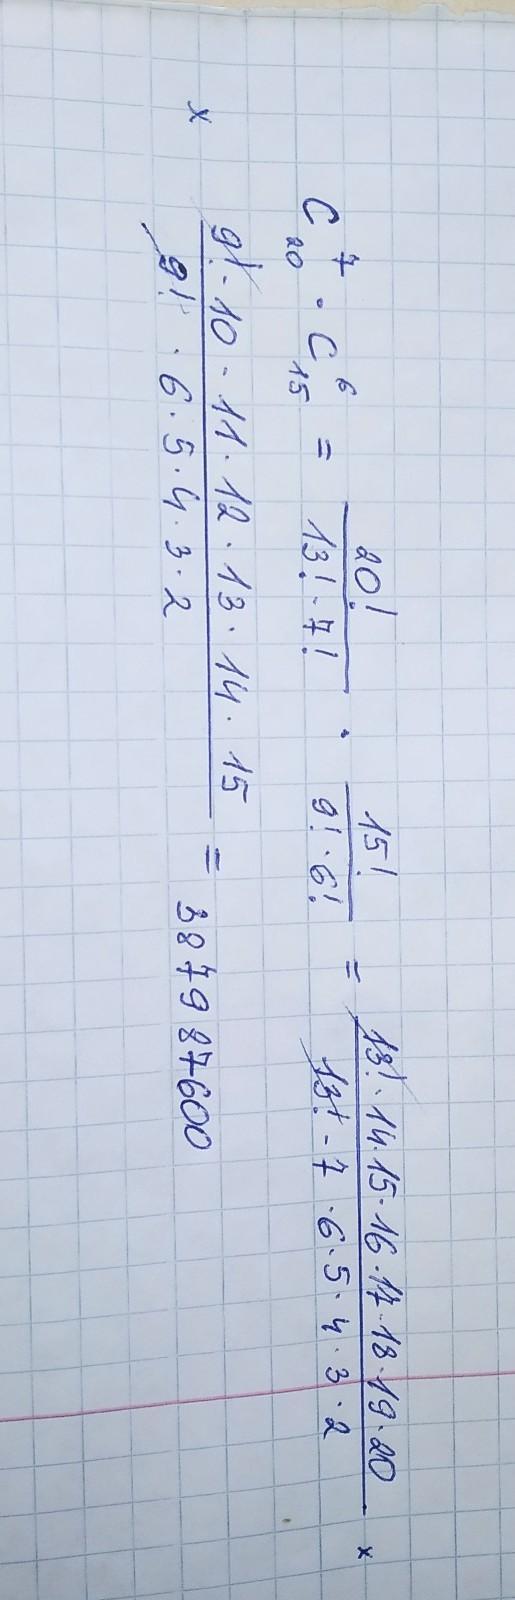 C₂₀⁷ · C₁₅⁶ = 20!/(13! · 7!) · 15!/(9! · 6!) = (13! · 14 · 15 · 16 · 17 · 18 · 19 · 20)/(13! · 7 · 6 · 5 · 4 · 3 · 2) ×
× (9! · 10 · 11 · 12 · 13 · 14 · 15)/(9! · 6 · 5 · 4 · 3 · 2) = 387987600